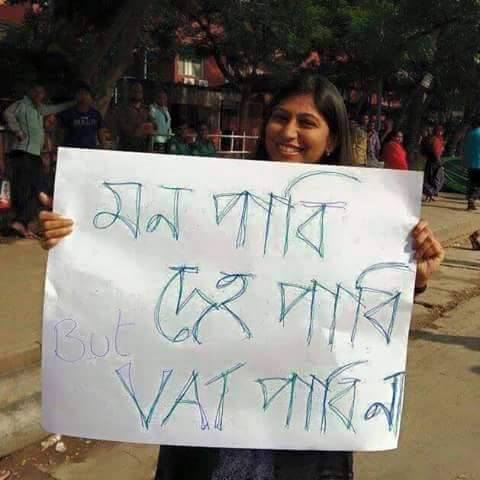 মন পাবি
দেহ পাবি
But VAT পাবি না